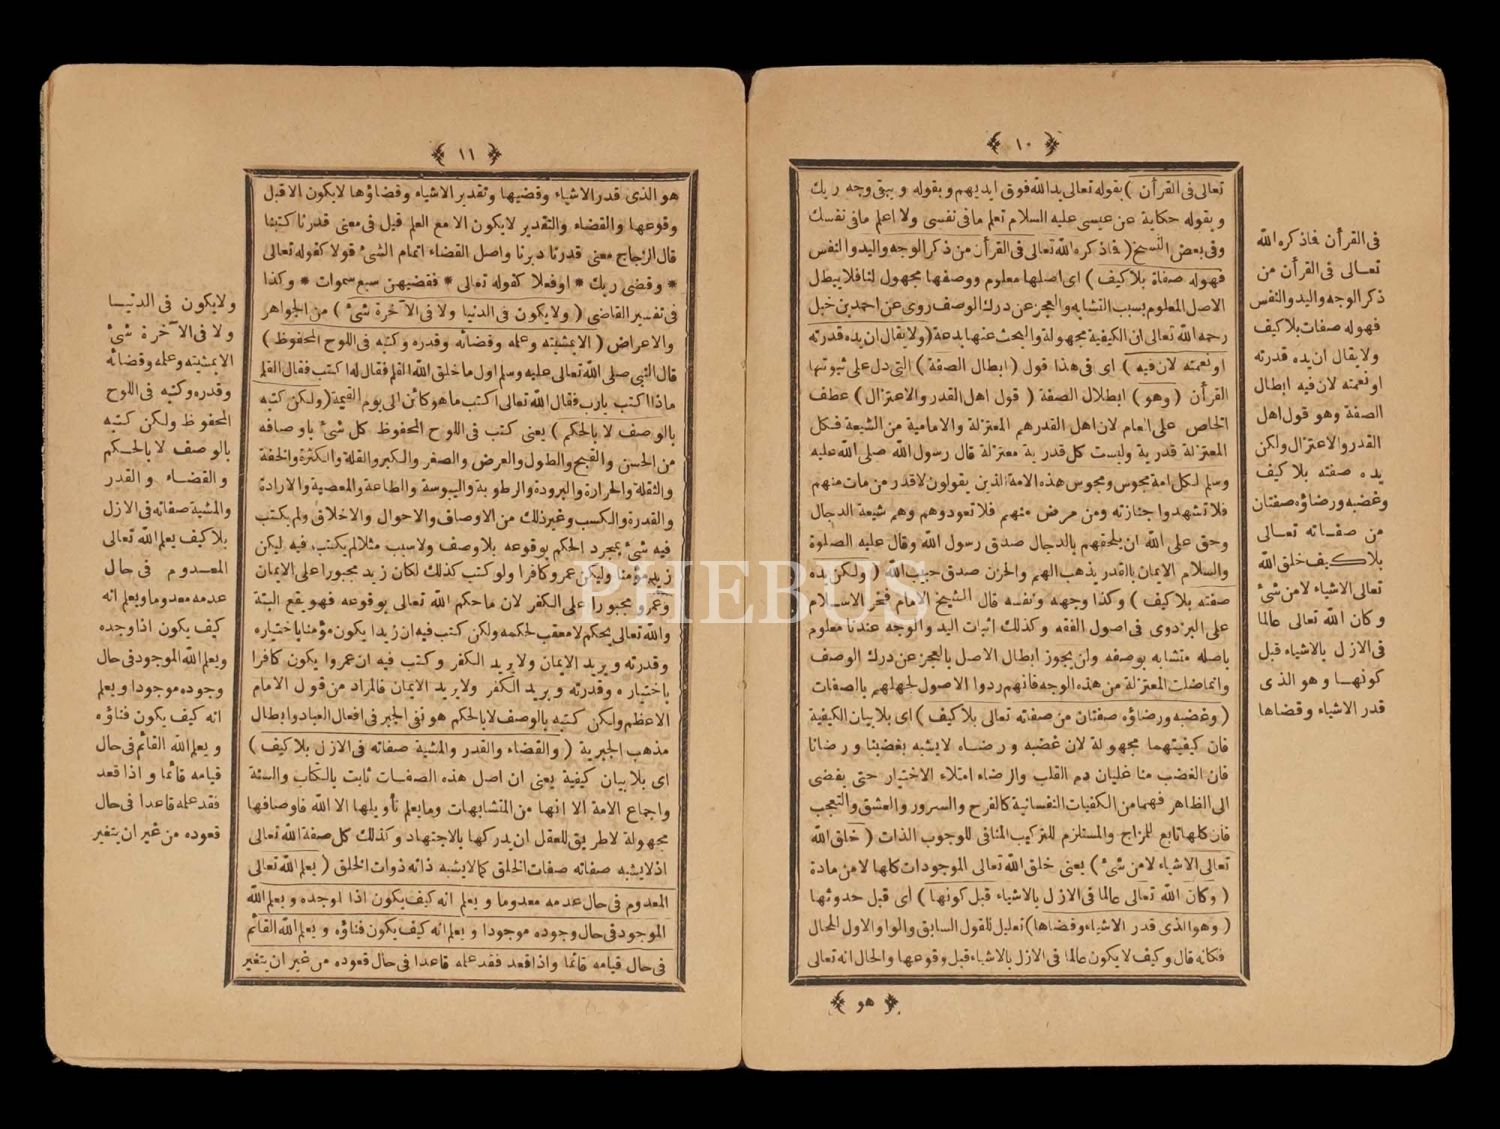 ﴿ ١٠ ﴾
تعالى فى القرأن ) بقوله تعالى يدالله فوق ايديهم وبقوله ويبقى وجه ربك
وبقوله حكاية عن عيسى عليه السلام تعلم مافى نفسى ولا اعلم مافى نفسك
وفى بعض النسخ ( فاذكره الله تعالى فى القرأن من ذكر الوجه واليد والنفس
فهوله صفاة بلاكيف ) اى اصلها معلوم ووصفها مجهول لنا فلا يبطل
الاصل المعلوم بسبب التشابه والعجز عن درك الوصف روى عن احمد بن حنبل
رحمه الله تعالى ان الكيفية مجهولة والبحث عنها بدعة ( ولا يقال ان يده قدرته
او نعمته لان فيه ) اى فى هذا قول ( ابطال الصفة ) التى دل على ثبوتها
القرأن ( وهو ) ابطلال الصفة ( قول اهل القدر والاعتزال ) عطف
الخاص على العام لان اهل القدرهم المعتزلة والامامية من الشيعة فكل
المعتزلة قدرية وليست كل قدرية معتزلة قال رسول الله صلى الله عليه
وسلم لكل امة مجوس ومجوس هذه الامة الذين يقولون لاقدر من مات منهم
فلا تشهدوا جنازته ومن مرض منهم فلا تعودوهم وهم شيعة الدجال
وحق على الله ان يلحقهم بالدجال صدق رسول الله وقال عليه الصلوة
والسلام الايمان بالقدر يذهب الهم والحزن صدق حبيب الله ( ولكن يده
صفته بلاكيف ) وكذا وجهه ونفسه قال الشيخ الامام فخر الاسلام
على البزدوى فى اصول الفقه وكذلك اثبات اليد والوجه عندنا معلوم
باصله متشابه بوصفه ولن يجوز ابطال الاصل بالعجز عن درك الوصف
وانماضلت المعتزلة من هذه الوجه فانهم ردوا الاصول لجهلهم بالصفات
( وغضبه ورضاؤه صفتان من صفاته تعالى بلاكيف ) اى بلابيان الكيفية
فان كيفيتهما مجهولة لان غضبه ورضاه لايشبه بغضبنا ورضانا
فان الغضب منا غليان دم القلب والرضاء امتلاء الاختيار حتى يفضى
الى الظاهر فهمامن الكفيات النفسانية كالفرح والسرور والعشق والتعجب
فان كلها تابع للمزاج والمستلزم للتركيب المنافى للوجوب الذات ( خلق الله
تعالى الاشياء لامن شئ ) يعنى خلق الله تعالى الموجودات كلها لامن مادة
( وكان الله تعالى عالما فى الازل بالاشياء قبل كونها ) اى قبل حدوثها
( وهو الذى قدر الاشياء وقضاها ) تعليل للقول السابق والواو الاول للحال
فكانه قال وكيف لا يكون عالما فى الازل بالاشياء قبل وقوعها والحال انه تعالى
﴿ هو ﴾
فى القرأن فاذكره الله
تعالى فى القرأن من
ذكر الوجه واليد والنفس
فهوله صفات بلاكيف
ولا يقال ان يده قدرته
او نعمته لان فيه ابطال
الصفة وهو قول اهل
القدر والاعتزال ولكن
يده صفته بلا كيف
وغضبه ورضاؤه صفتان
من صفاته تعالى
بلاكيف خلق الله
تعالى الاشياء لا من شئ
وكان الله تعالى عالما
فى الازل بالاشياء قبل
كونها وهو الذى
قدر الاشياء وقضاها
﴿ ١١ ﴾
هو الذى قدر الاشياء وقضيها وتقدير الاشياء وقضاؤها لايكون الاقبل
وقوعها والقضاء والتقدير لايكون الا مع العلم قيل فى معنى قدرنا كتبنا
قال الزجاج معنى قدرنا دبرنا واصل القضاء اتمام الشئ قولا كقوله تعالى
* وقضى ربك * اوفعلا كقوله تعالى * فقضيهن سبع سموات * وكذا
فى تفسير القاضى ( ولايكون فى الدنيا ولا فى الآخرة شئ ) من الجواهر
والاعراض ( الابمشيته وعلمه وقضائه وقدره وكتبه فى اللوح المحفوظ )
قال النبى صلى الله تعالى عليه وسلم اول ماخلق الله القلم فقال له اكتب فقال القلم
ماذا اكتب يارب فقال الله تعالى اكتب ماهو كائن الى يوم القيمة ( ولكن كتبه
بالوصف لا بالحكم ) يعنى كتب فى اللوح المحفوظ كل شئ باوصافه
من الحسن والقبيح والطول والعرض والصغر والكبر والقلة والكثرة والخفة
والثقلة والحرارة والبرودة والرطوبة واليبوسة والطاعة والمعصية والارادة
والقدرة والكسب وغير ذلك من الاوصاف والاحوال والاخلاق ولم يكتب
فيه شئ بمجرد الحكم بوقوعه بلاوصف ولاسبب مثلا لم يكتب فيه ليكن
زيد مؤمنا وليكن عمرو كافرا ولو كتب كذلك لكان زيد مجبورا على الايمان
وعمرو مجبورا على الكفر لان ماحكم الله تعالى بوقوعه فهو يقع البتة
والله تعالى يحكم لامعقب لحكمه ولكن كتب فيه ان زيدا يكون مؤمنا باختياره
وقدرته ويريد الايمان ولايريد الكفر وكتب فيه ان عمروا يكون كافرا
باختياره وقدرته ويريد الكفر ولايريد الايمان فالمراد من قول الامام
الاعظم ولكن كتبه بالوصف لابالحكم هو نفى الجبر فى افعال العباد وابطال
مذهب الجبرية ( والقضاء والقدر والمشية صفاته فى الازل بلاكيف )
اى بلابيان كيفية يعنى ان اصل هذه الصفات ثابت بالكتاب والسنة
واجماع الامة الا انها من المتشابهات ومايعلم تأويلها الا الله فاوصافها
مجهولة لاطريق للعقل ان يدركها بالاجتهاد وكذلك كل صفة الله تعالى
اذلايشبه صفاته صفات الخلق كما لايشبه ذاته ذوات الخلق ( يعلم الله تعالى
المعدوم فى حال عدمه معدوما ويعلم انه كيف يكون اذا اوجده ويعلم الله
الموجود فى حال وجوده موجودا ويعلم انه كيف يكون فناؤه ويعلم الله القائم
فى حال قيامه قائما واذا قعد فقد علمه قاعدا فى حال قعوده من غير ان يتغير
ولايكون فى الدنيا
ولا فى الآخرة شئ
الابمشيته وعلمه وقضائه
وقدره وكتبه فى اللوح
المحفوظ ولكن كتبه
بالوصف لا بالحكم
والقضاء والقدر
والمشية صفاته فى الازل
بلاكيف يعلم الله تعالى
المعدوم فى حال
عدمه معدوما ويعلم انه
كيف يكون اذا وجده
ويعلم الله الموجود فى حال
وجوده موجودا ويعلم
انه كيف يكون فناؤه
ويعلم الله القائم فى حال
قيامه قائما واذا قعد
فقد علمه قاعدا فى حال
قعوده من غير ان يتغير
PHEBUS